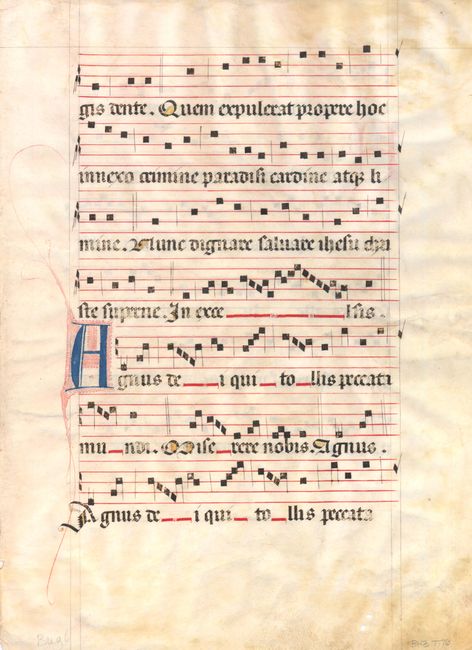 gis dente. Quem expulerat propere hoc
innexo crimine paradisi cardine atqz li
mine. Nunc dignare saluare ihesu chri
ste suprne. In exce lsis.
Agnus de i qui to llis peccata
mu ndi. Mise rere nobis. Agnus.
Agnus de i qui to llis peccata